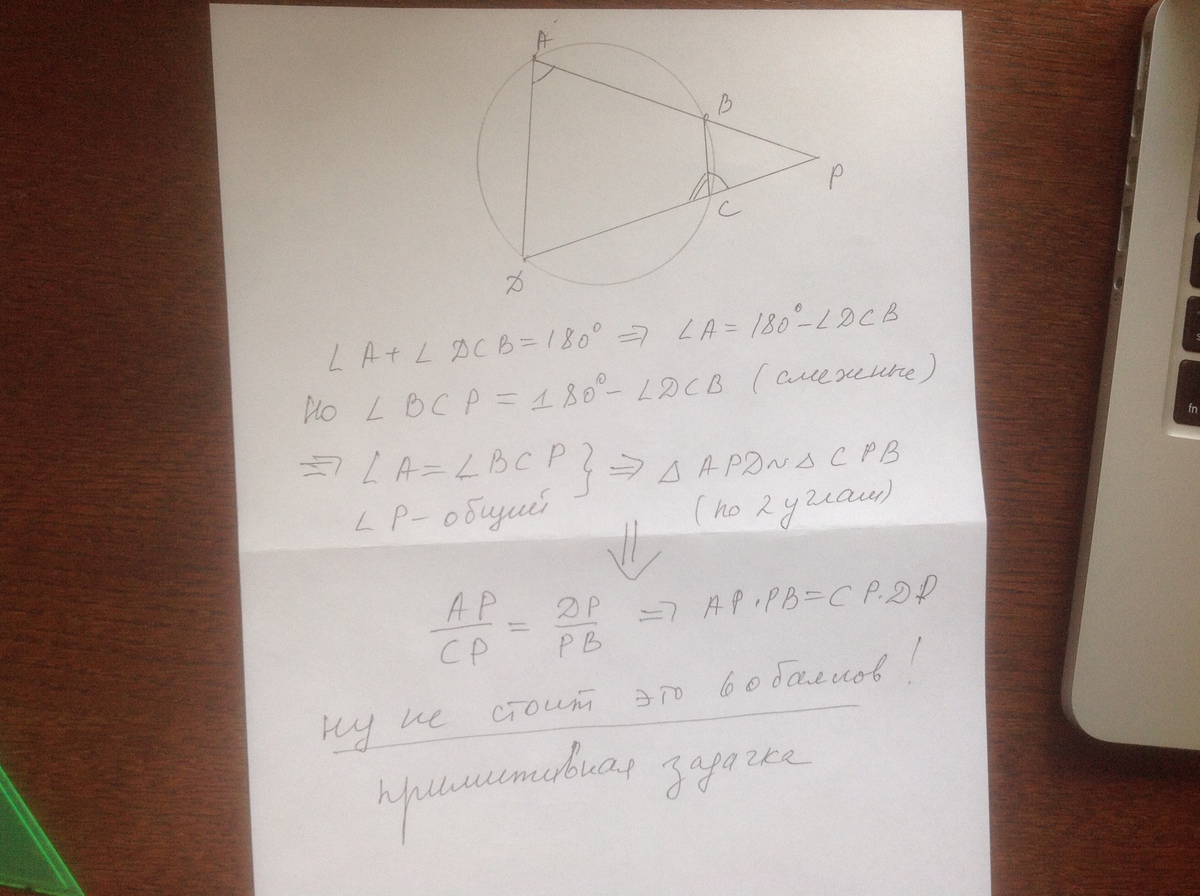 A
B
P
C
D
∠A+∠DCB=180° ⇒ ∠A=180°-∠DCB
Но ∠BCP=180°-∠DCB (смежные)
⇒ ∠A=∠BCP } ⇒ △APD~△CPB
∠P-общий (по 2 углам)
⇓
AP/CP = DP/PB ⇒ AP·PB=CP·DP
ну не стоит это 60 баллов!
примитивная задачка
fn